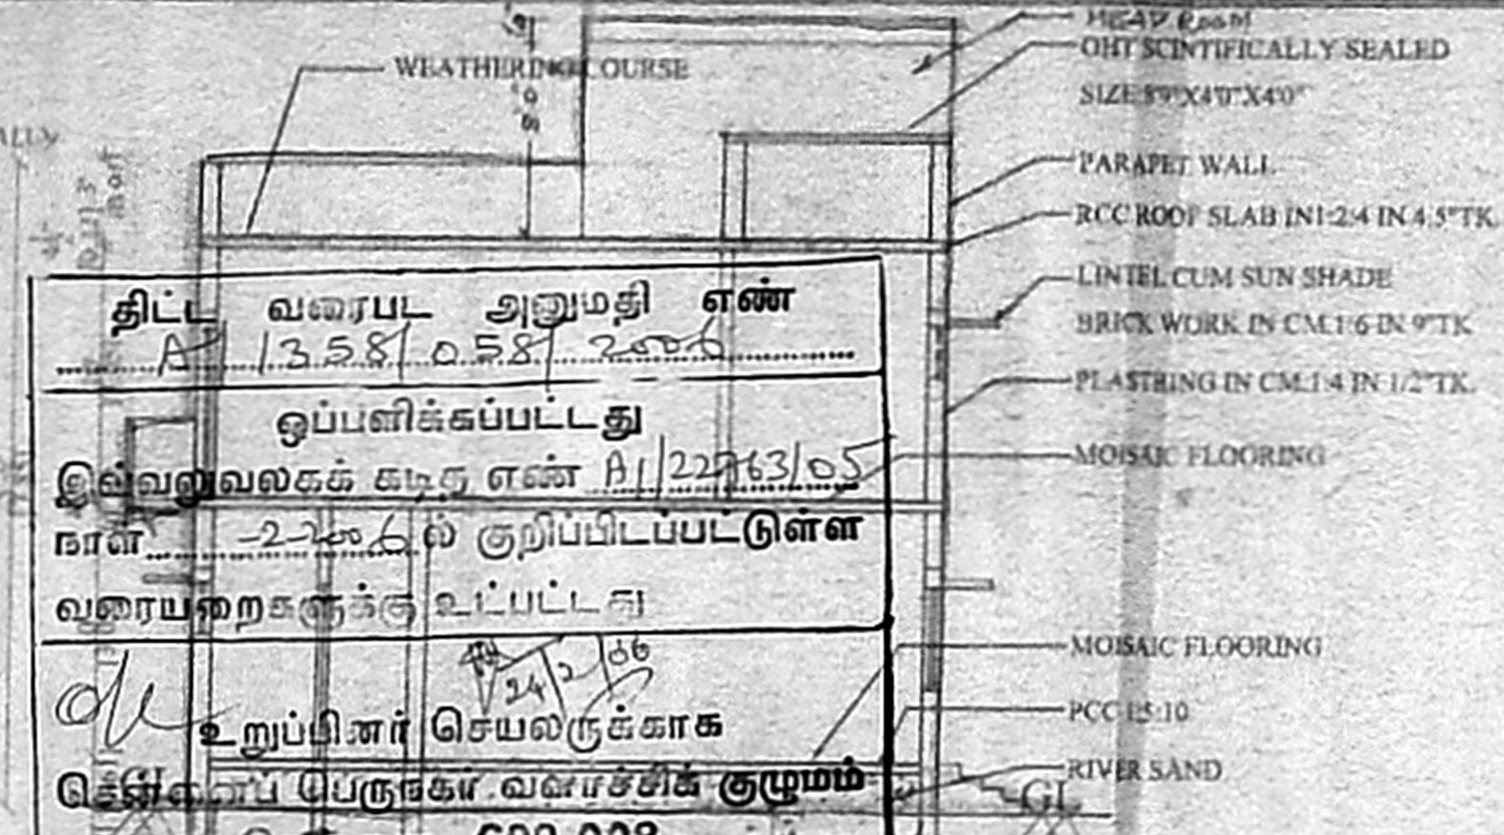 HEAD ROOM
WEATHERING COURSE
OHT SCINTIFICALLY SEALED
SIZE 8'9"X4'0"X4'0"
PARAPET WALL
RCC ROOF SLAB IN1:2:4 IN 4.5"TK.
LINTEL CUM SUN SHADE
BRICK WORK IN CM.1:6 IN 9"TK
PLASTRING IN CM.1:4 IN 1/2"TK.
MOISAIC FLOORING
MOISAIC FLOORING
PCC 1:5:10
RIVER SAND
GL
திட்ட வரைபட அனுமதி எண்
A 1358/058/2006
ஒப்பளிக்கப்பட்டது
இவ்வலுவலகக் கடித எண் A1/22763/05
நாள் -2-2006 ல் குறிப்பிடப்பட்டுள்ள
வரையறைகளுக்கு உட்பட்டது
24/2/06
உறுப்பினர் செயலருக்காக
சென்னைப் பெருநகர் வளர்ச்சிக் குழுமம்